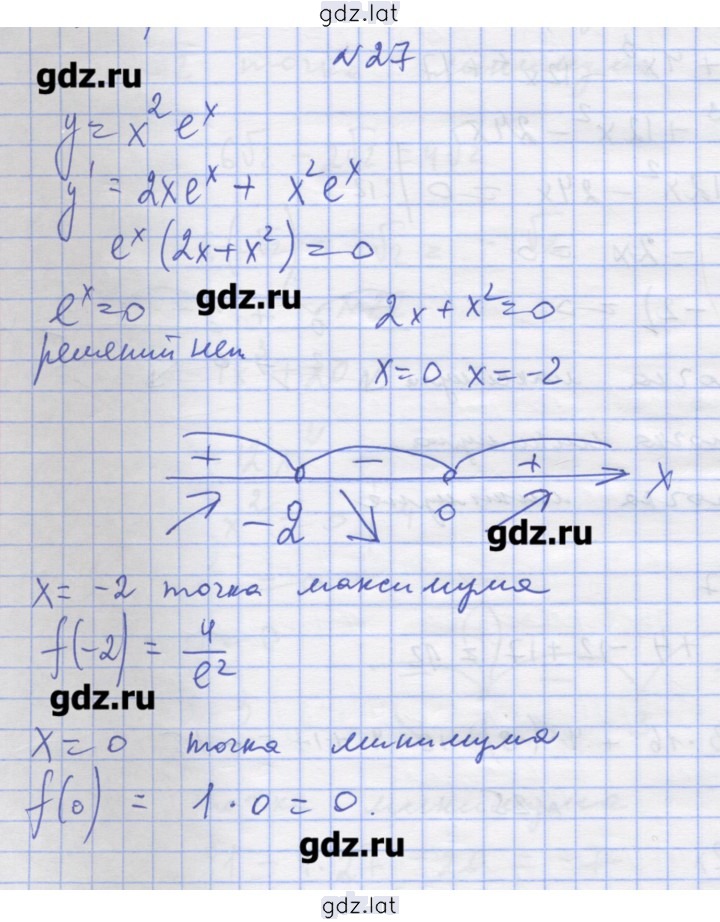 gdz.lat
№27
gdz.ru
y = x² eˣ
y' = 2xeˣ + x²eˣ
eˣ(2x+x²) = 0
gdz.ru
eˣ=0 2x + x² = 0
решений нет x=0 x=-2
+ − + x
-2 0
gdz.ru
x = -2 точка максимума
f(-2) = 4/e²
gdz.ru
x = 0 точка минимума
f(0) = 1·0 = 0.
gdz.ru
gdz.lat